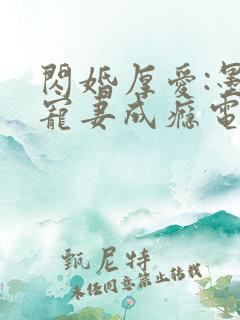 閃婚厚愛:墨
寵妻成瘾電
甄尼特
未经同意禁止转载